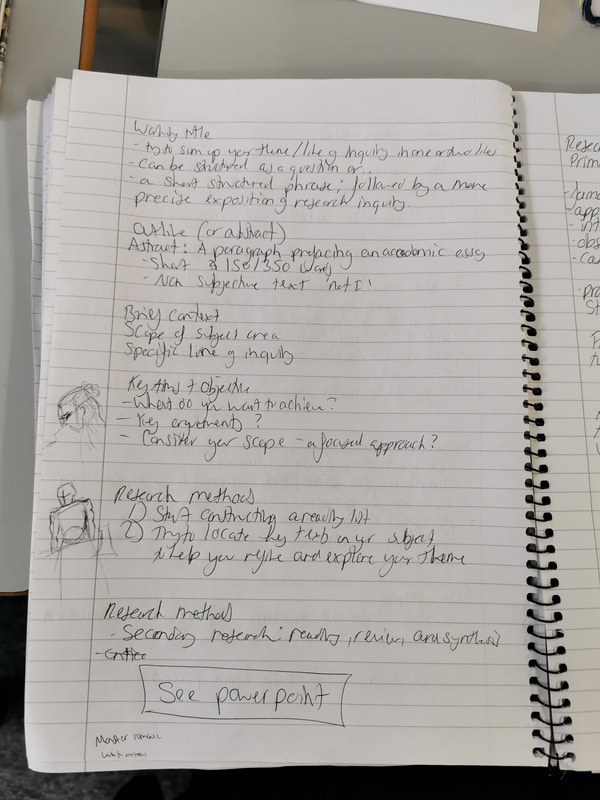 Working title
- try to sum up your theme/line of inquiry in one or two lines
- Can be structured as a question or..
- a short structured phrase; followed by a more
precise exposition of research inquiry.
Outline (or abstract)
Abstract: A paragraph prefacing an academic essay
- Short 150/350 (words)
- Non subjective text 'not I'
Brief context
Scope of subject area
Specific line of inquiry
Key Aims + objective
- What do you want to achieve?
- Key arguments?
- Consider your scope - a focused approach?
Research methods
1) Start constructing a reading list
2) Try to locate key texts in your subject
to help you refine and explore your theme
Research methods
- Secondary research: reading, review, and synthesis
See powerpoint
Monster
Resear
Prima
- app
- int
- obs
- pr
St